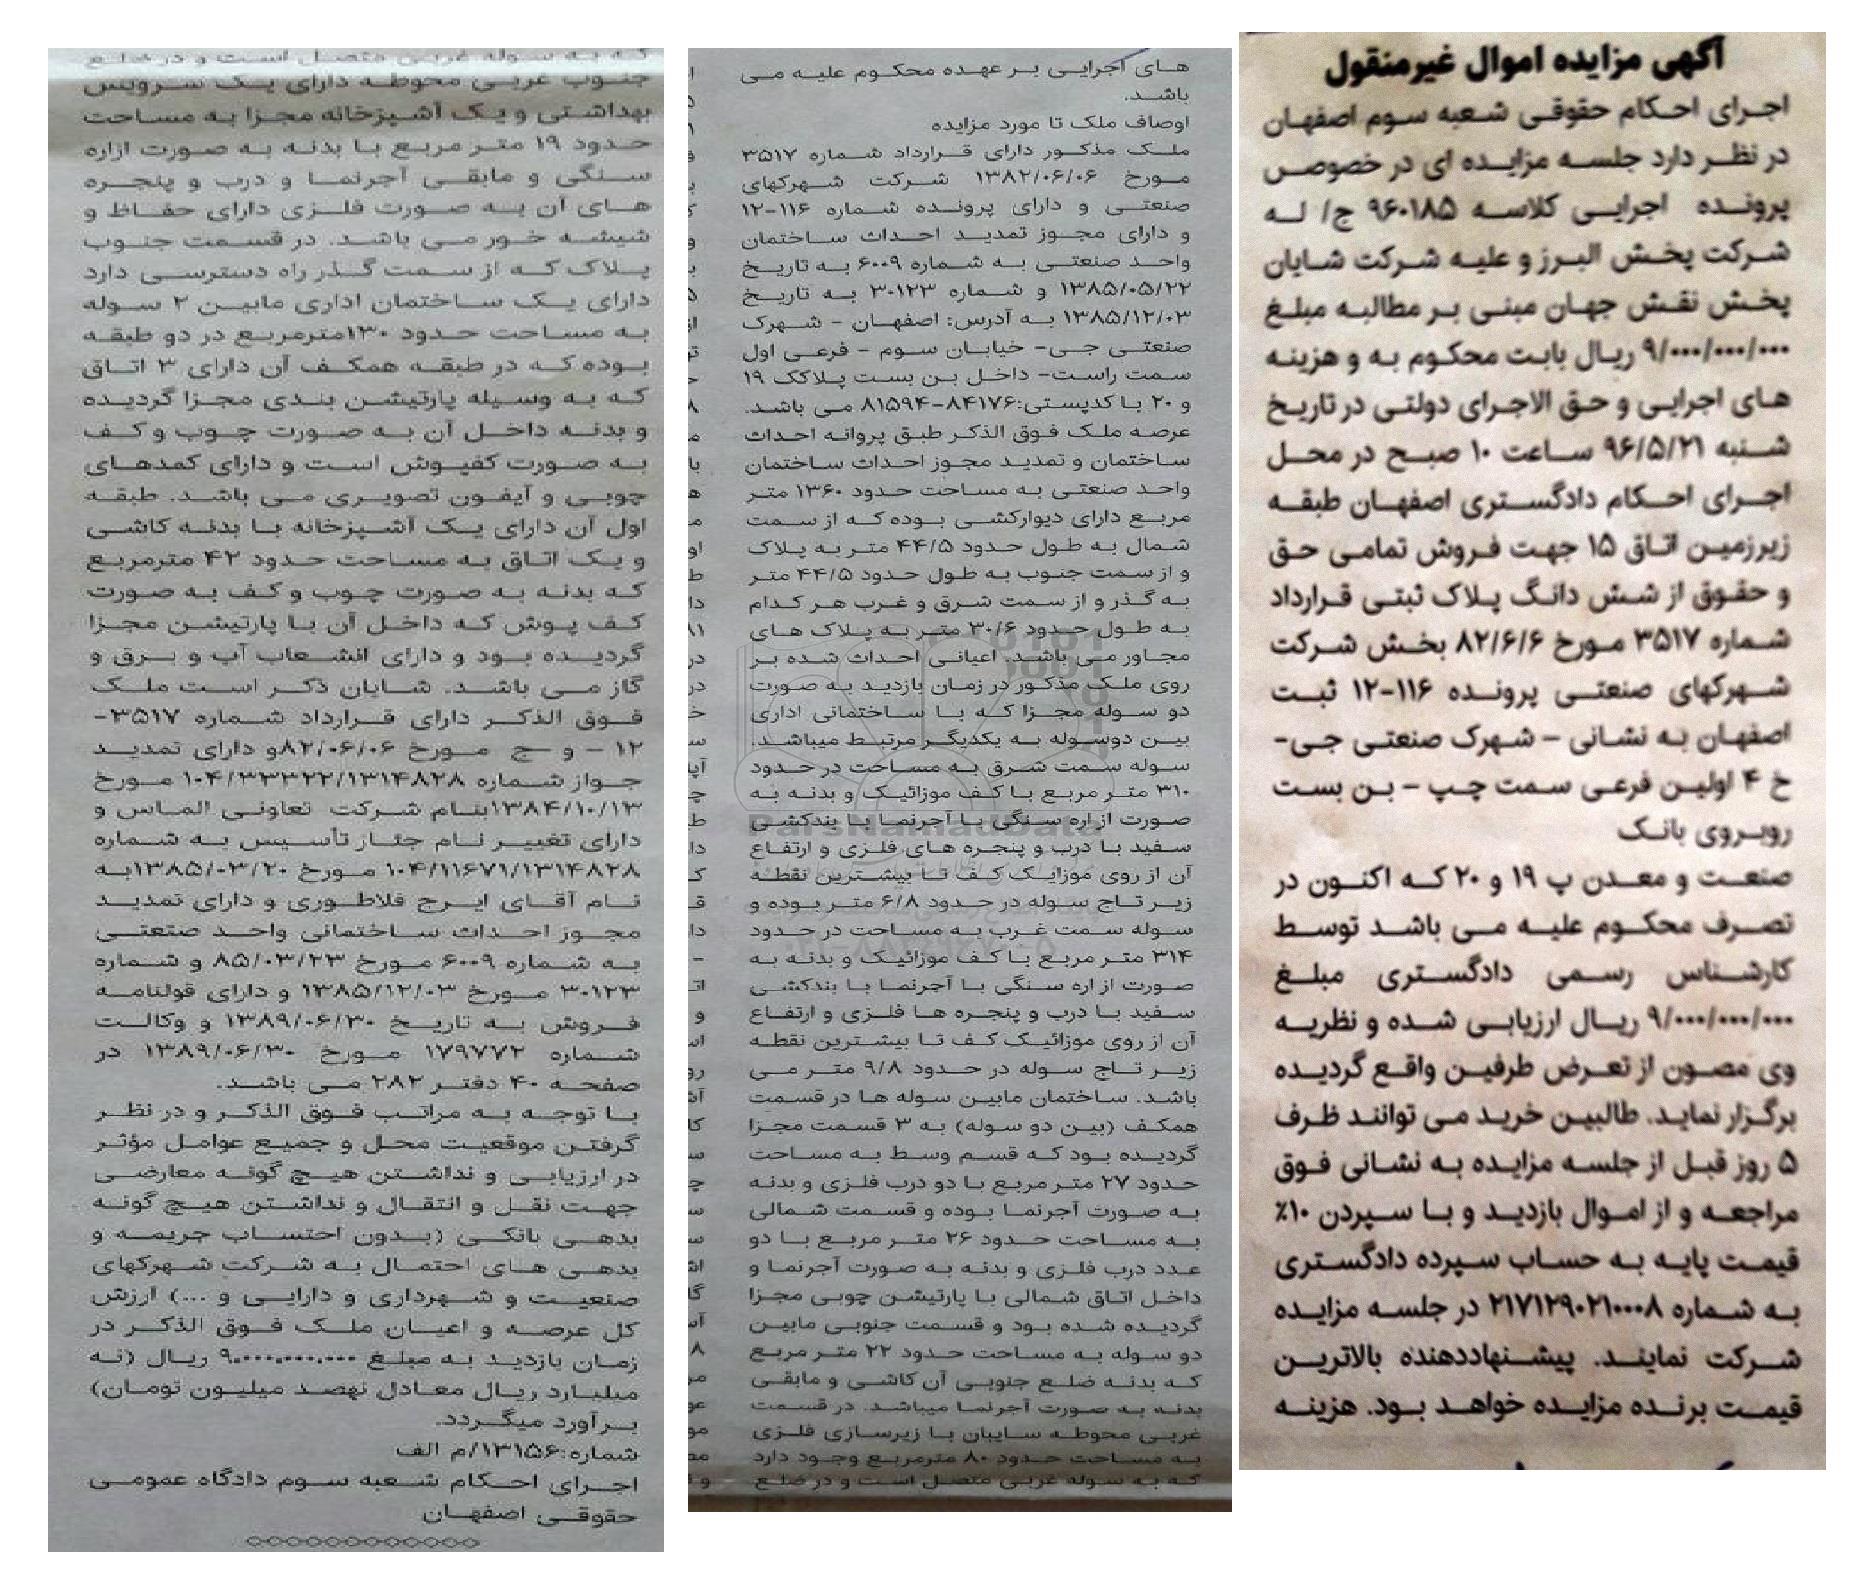 آگهی مزایده اموال غیرمنقول
اجرای احکام حقوقی شعبه سوم اصفهان
در نظر دارد جلسه مزایده ای در خصوص
پرونده اجرایی کلاسه ۹۶۰۱۸۵ ج/ له
شرکت پخش البرز و علیه شرکت شایان
پخش نقش جهان مبنی بر مطالبه مبلغ
۹/۰۰۰/۰۰۰/۰۰۰ ریال بابت محکوم به و هزینه
های اجرایی و حق الاجرای دولتی در تاریخ
شنبه ۹۶/۵/۲۱ ساعت ۱۰ صبح در محل
اجرای احکام دادگستری اصفهان طبقه
زیرزمین اتاق ۱۵ جهت فروش تمامی حق
و حقوق از شش دانگ پلاک ثبتی قرارداد
شماره ۳۵۱۷ مورخ ۸۲/۶/۶ بخش شرکت
شهرکهای صنعتی پرونده ۱۱۶-۱۲ ثبت
اصفهان به نشانی - شهرک صنعتی جی-
خ ۴ اولین فرعی سمت چپ - بن بست
روبروی بانک
صنعت و معدن پ ۱۹ و ۲۰ که اکنون در
تصرف محکوم علیه می باشد توسط
کارشناس رسمی دادگستری مبلغ
۹/۰۰۰/۰۰۰/۰۰۰ ریال ارزیابی شده و نظریه
وی مصون از تعرض طرفین واقع گردیده
برگزار نماید. طالبین خرید می توانند ظرف
۵ روز قبل از جلسه مزایده به نشانی فوق
مراجعه و از اموال بازدید و با سپردن ۱۰٪
قیمت پایه به حساب سپرده دادگستری
به شماره ۲۱۷۱۲۹۰۲۱۰۰۰۸ در جلسه مزایده
شرکت نمایند. پیشنهاددهنده بالاترین
قیمت برنده مزایده خواهد بود. هزینه
های اجرایی بر عهده محکوم علیه می
باشد.
اوصاف ملک تا مورد مزایده
ملک مذکور دارای قرارداد شماره ۳۵۱۷
مورخ ۱۳۸۲/۰۶/۰۶ شرکت شهرکهای
صنعتی و دارای پرونده شماره ۱۱۶-۱۲
و دارای مجوز تمدید احداث ساختمان
واحد صنعتی به شماره ۶۰۰۹ به تاریخ
۱۳۸۵/۰۵/۲۲ و شماره ۳۰۱۲۳ به تاریخ
۱۳۸۵/۱۲/۰۳ به آدرس: اصفهان - شهرک
صنعتی جی- خیابان سوم - فرعی اول
سمت راست- داخل بن بست پلاکک ۱۹
و ۲۰ با کدپستی:۸۴۱۷۶-۸۱۵۹۴ می باشد.
عرصه ملک فوق الذکر طبق پروانه احداث
ساختمان و تمدید مجوز احداث ساختمان
واحد صنعتی به مساحت حدود ۱۳۶۰ متر
مربع دارای دیوارکشی بوده که از سمت
شمال به طول حدود ۴۴/۵ متر به پلاک
و از سمت جنوب به طول حدود ۴۴/۵ متر
به گذر و از سمت شرق و غرب هر کدام
به طول حدود ۳۰/۶ متر به پلاک های
مجاور می باشد. اعیانی احداث شده بر
روی ملک مذکور در زمان بازدید به صورت
دو سوله مجزا که با ساختمانی اداری
بین دوسوله به یکدیگر مرتبط میباشد.
سوله سمت شرق به مساحت در حدود
۳۱۰ متر مربع با کف موزائیک و بدنه به
صورت ازاره سنگی با آجرنما با بندکشی
سفید با درب و پنجره های فلزی و ارتفاع
آن از روی موزایک کف تا بیشترین نقطه
زیر تاج سوله در حدود ۶/۸ متر بوده و
سوله سمت غرب به مساحت در حدود
۳۱۴ متر مربع با کف موزائیک و بدنه به
صورت ازاره سنگی با آجرنما با بندکشی
سفید با درب و پنجره ها فلزی و ارتفاع
آن از روی موزائیک کف تا بیشترین نقطه
زیر تاج سوله در حدود ۹/۸ متر می
باشد. ساختمان مابین سوله ها در قسمت
همکف (بین دو سوله) به ۳ قسمت مجزا
گردیده بود که قسم وسط به مساحت
حدود ۲۷ متر مربع با دو درب فلزی و بدنه
به صورت آجرنما بوده و قسمت شمالی
به مساحت حدود ۲۶ متر مربع با دو
عدد درب فلزی و بدنه به صورت آجرنما و
داخل اتاق شمالی با پارتیشن چوبی مجزا
گردیده شده بود و قسمت جنوبی مابین
دو سوله به مساحت حدود ۲۲ متر مربع
که بدنه ضلع جنوبی آن کاشی و مابقی
بدنه به صورت آجرنما میباشد. در قسمت
غربی محوطه سایبان با زیرسازی فلزی
به مساحت حدود ۸۰ مترمربع وجود دارد
که به سوله غربی متصل است و در ضلع
که به سوله غربی متصل است و در ضلع
جنوب غربی محوطه دارای یک سرویس
بهداشتی و یک آشپزخانه مجزا به مساحت
حدود ۱۹ متر مربع با بدنه به صورت ازاره
سنگی و مابقی آجرنما و درب و پنجره
های آن به صورت فلزی دارای حفاظ و
شیشه خور می باشد. در قسمت جنوب
پلاک که از سمت گذر راه دسترسی دارد
دارای یک ساختمان اداری مابین ۲ سوله
به مساحت حدود ۱۳۰مترمربع در دو طبقه
بوده که در طبقه همکف آن دارای ۳ اتاق
که به وسیله پارتیشن بندی مجزا گردیده
و بدنه داخل آن به صورت چوب و کف
به صورت کفپوش است و دارای کمدهای
چوبی و آیفون تصویری می باشد. طبقه
اول آن دارای یک آشپزخانه با بدنه کاشی
و یک اتاق به مساحت حدود ۴۲ مترمربع
که بدنه به صورت چوب و کف به صورت
کف پوش که داخل آن با پارتیشن مجزا
گردیده بود و دارای انشعاب آب و برق و
گاز می باشد. شایان ذکر است ملک
فوق الذکر دارای قرارداد شماره ۳۵۱۷-
۱۲ - و -ج مورخ ۸۲/۰۶/۰۶و دارای تمدید
جواز شماره ۱۰۴/۳۳۳۲۲/۱۳۱۴۸۲۸ مورخ
۱۳۸۴/۱۰/۱۳بنام شرکت تعاونی الماس و
دارای تغییر نام جثاز تأسیس به شماره
۱۰۴/۱۱۶۷۱/۱۳۱۴۸۲۸ مورخ ۱۳۸۵/۰۳/۲۰به
نام آقای ایرج فلاطوری و دارای تمدید
مجوز احداث ساختمانی واحد صنعتی
به شماره ۶۰۰۹ مورخ ۸۵/۰۳/۲۳ و شماره
۳۰۱۲۳ مورخ ۱۳۸۵/۱۲/۰۳ و دارای قولنامه
فروش به تاریخ ۱۳۸۹/۰۶/۳۰ و وکالت
شماره ۱۷۹۷۷۲ مورخ ۱۳۸۹/۰۶/۳۰ در
صفحه ۴۰ دفتر ۲۸۲ می باشد.
با توجه به مراتب فوق الذکر و در نظر
گرفتن موقعیت محل و جمیع عوامل مؤثر
در ارزیابی و نداشتن هیچ گونه معارضی
جهت نقل و انتقال و نداشتن هیچ گونه
بدهی بانکی (بدون احتساب جریمه و
بدهی های احتمال به شرکت شهرکهای
صنعیت و شهرداری و دارایی و ...) ارزش
کل عرصه و اعیان ملک فوق الذکر در
زمان بازدید به مبلغ ۹.۰۰۰.۰۰۰.۰۰۰ ریال (نه
میلیارد ریال معادل نهصد میلیون تومان)
برآورد میگردد.
شماره:۱۳۱۵۶/م الف
اجرای احکام شعبه سوم دادگاه عمومی
حقوقی اصفهان
ParsNamadData